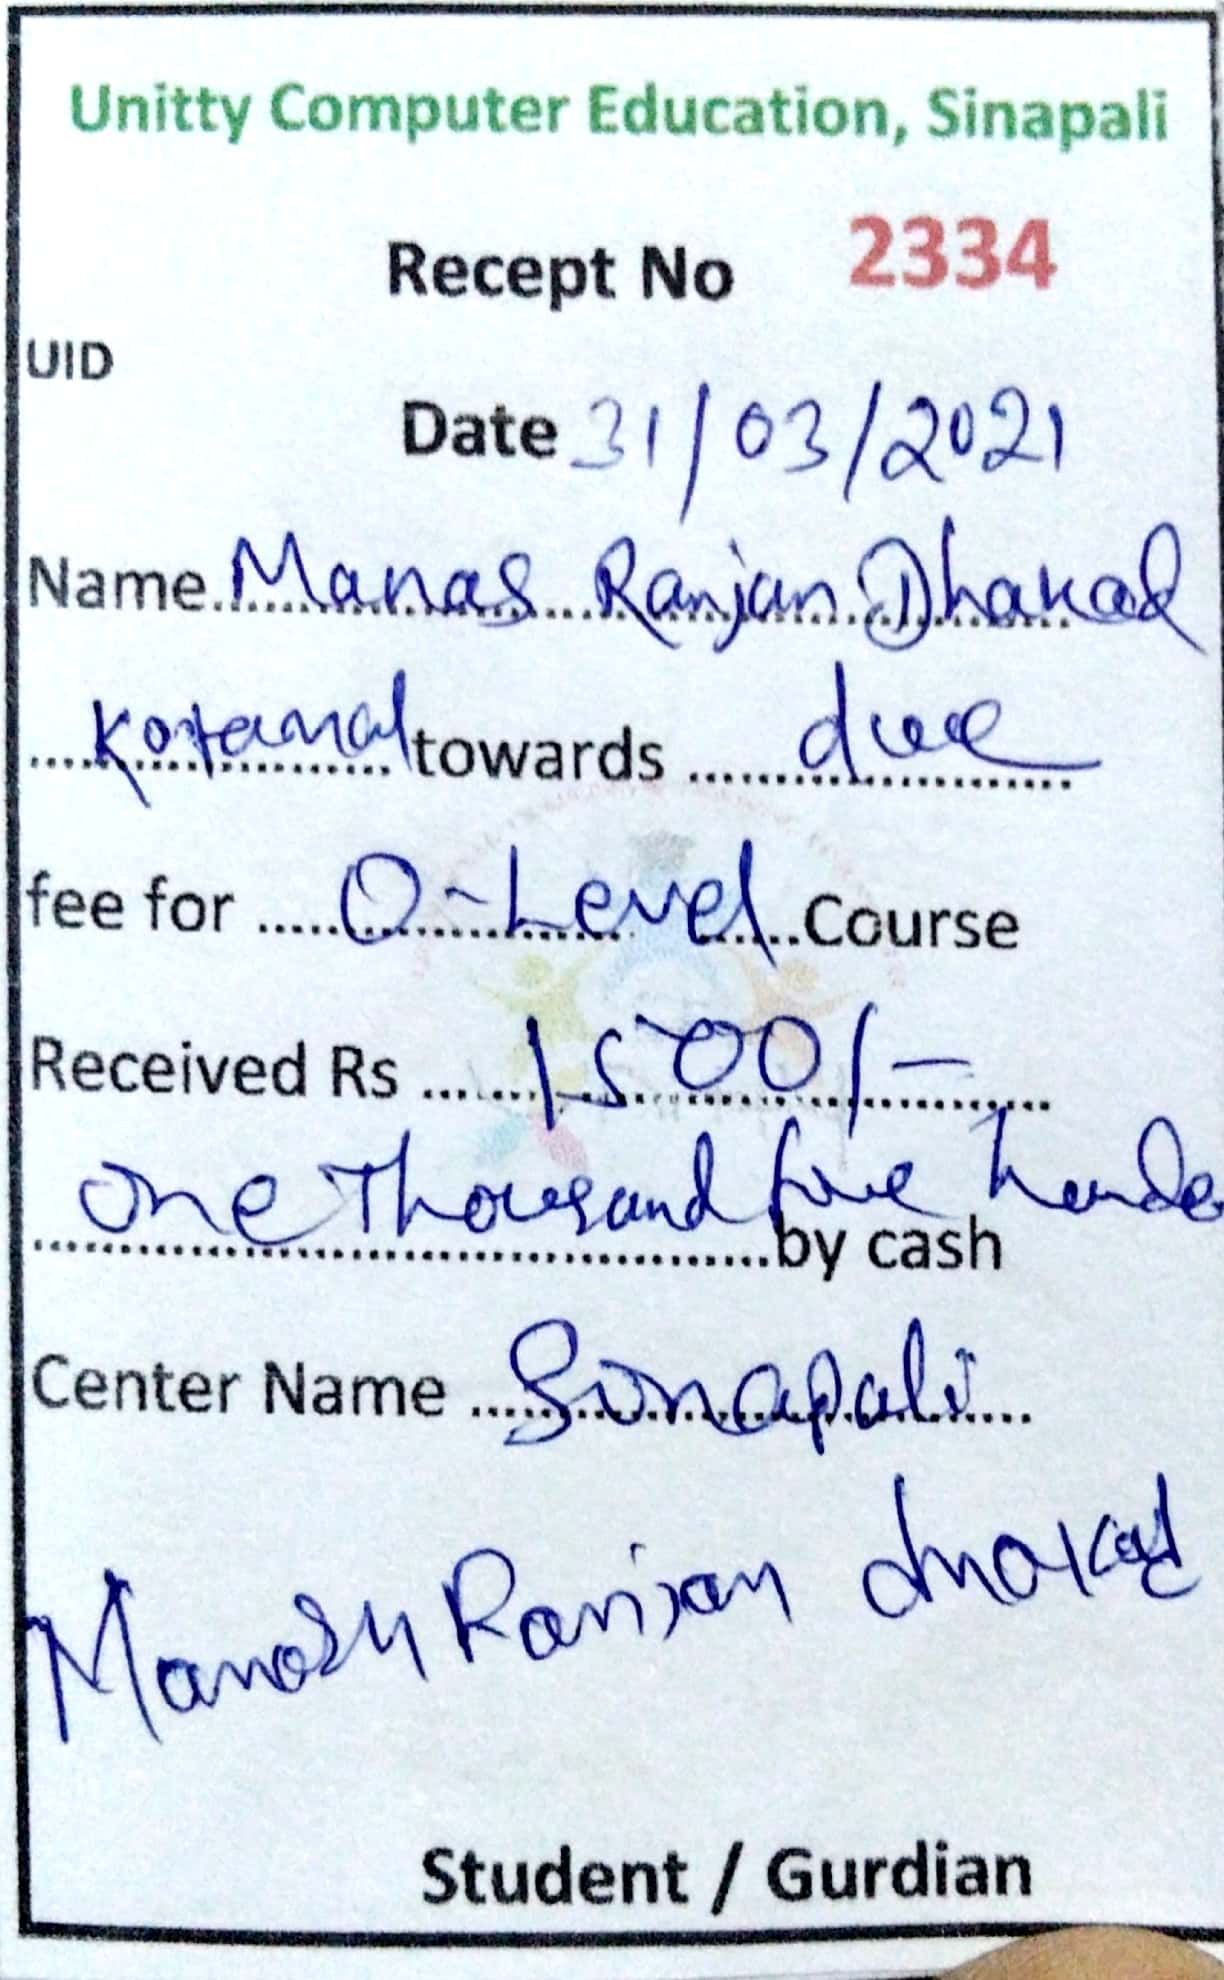 Unitty Computer Education, Sinapali
Recept No 2334
UID
Date 31/03/2021
Name Manas Ranjan Dhakad
towards due
fee for O-Level Course
Received Rs 1500/-
One Thousand five
by cash
Center Name Sinapali
Ranjan
Student / Gurdian